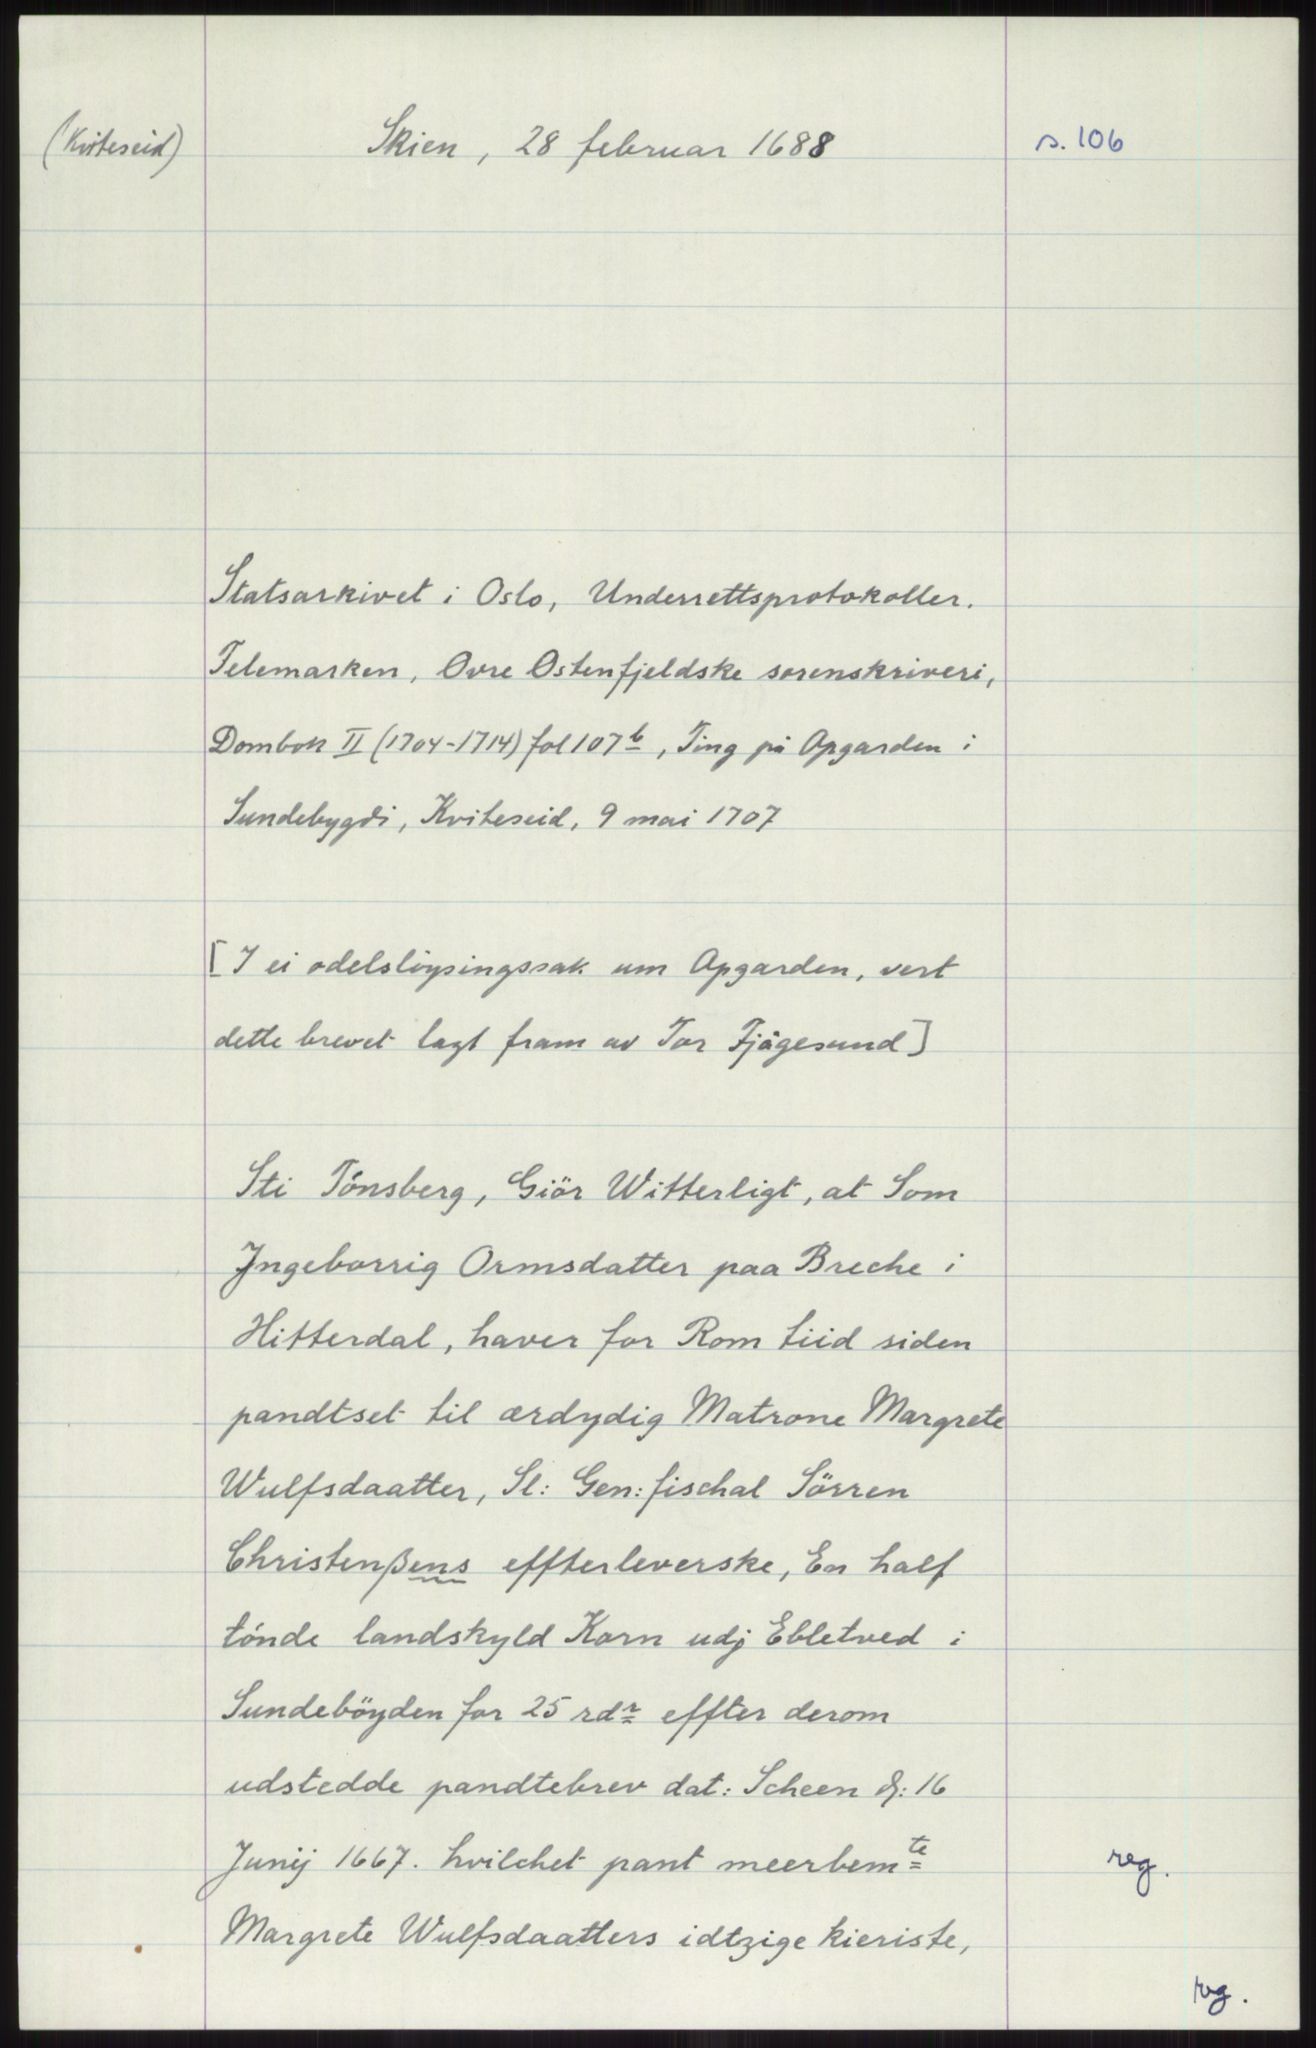 (Kviteseid)
Skien, 28 februar 1688
s. 106
Statsarkivet i Oslo, Underrettsprotokoller.
Telemarken, Ovre Ostenfjeldske sorenskriveri,
Dombok II (1704-1714) fol 107b, Ting på Apgarden i
Sundebygdi, Kviteseid, 9 mai 1707
[I ei odelsløysingssak um Apgarden, vert
dette brevet lagt fram av Tor Fjågesund]
Sti Tönsberg, Giör Witterligt, at Som
Jngeborrig Ormsdatter paa Breche i
Hitterdal, haver for Rom tiid siden
pandtset til ærdydig Matrone Margrete
Wulfsdaatter, Sl: Gen: fischal Sörren
Christenßens effterleverske, En half
tónde landskyld Korn udj Ebletved i
Sundeböyden for 25 rdr effter derom
udstedde pandtebrev dat: Scheen d: 16
Junij 1667. hvilchet pant meerbemte
reg.
Margrete Wulfsdaatters idtzige kieriste,
reg.